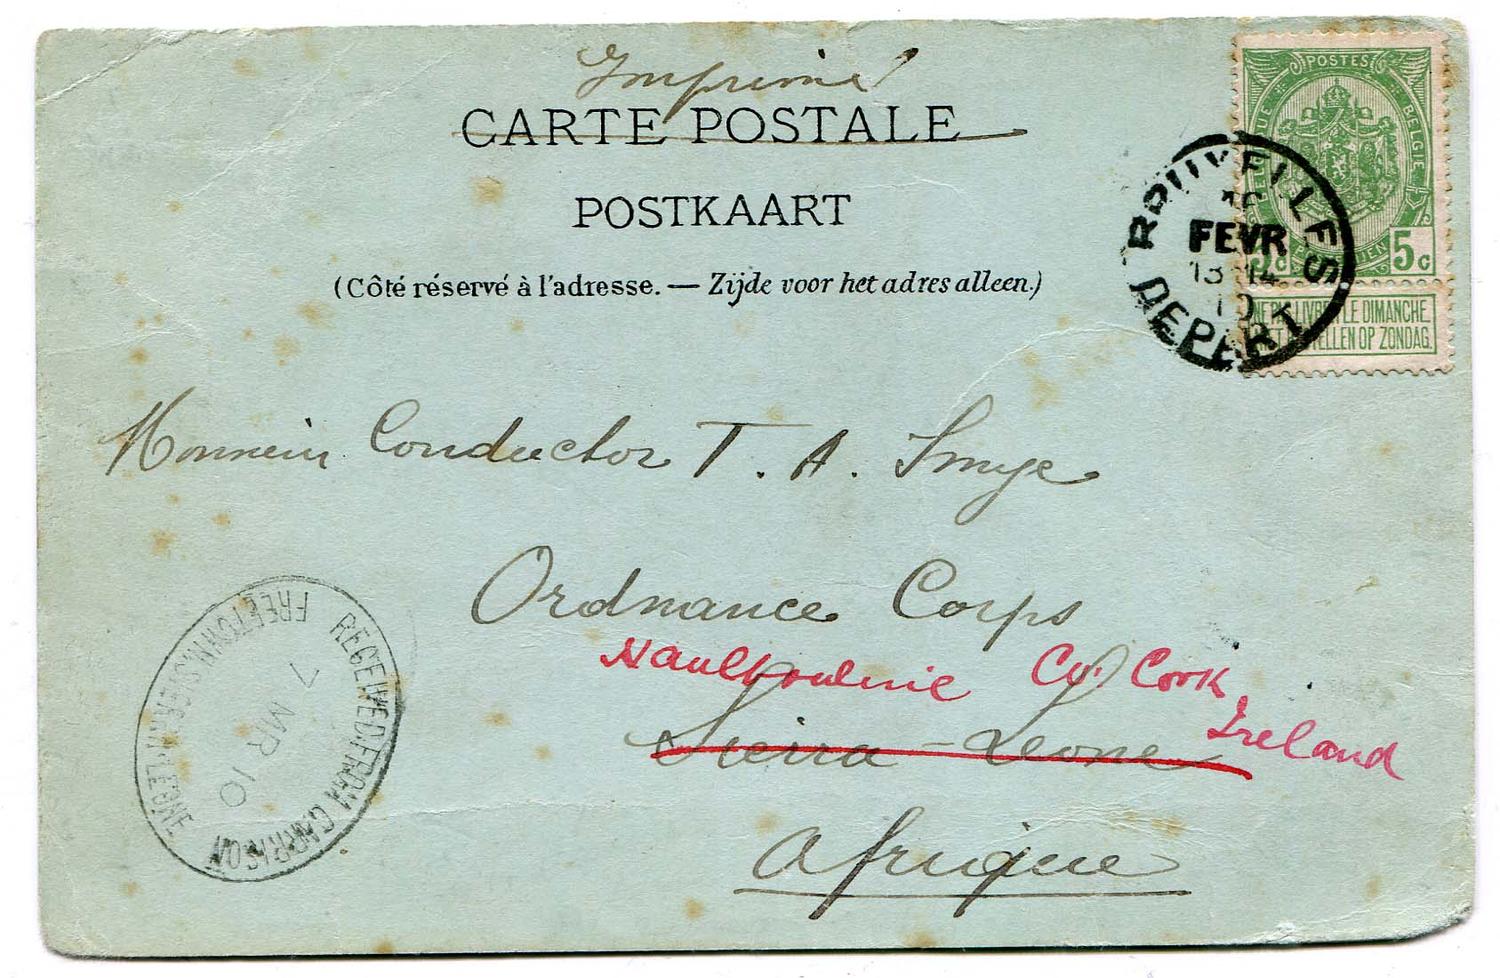 Imprimé
CARTE POSTALE
POSTKAART
(Côté réservé à l'adresse. — Zijde voor het adres alleen.)
POSTES
BELGIE
5c 5c
LIVRER LE DIMANCHE.
BESTELLEN OP ZONDAG.
BRUXELLES
FEVR
13-14
10
DEPART
Monsieur Conductor T. A. Smye
Ordnance Corps
Haulbowline Co. Cork,
Ireland
Sierra-Leone
Afrique
RECEIVED FROM GARRISON
7 MR 10
FREETOWN, SIERRA LEONE